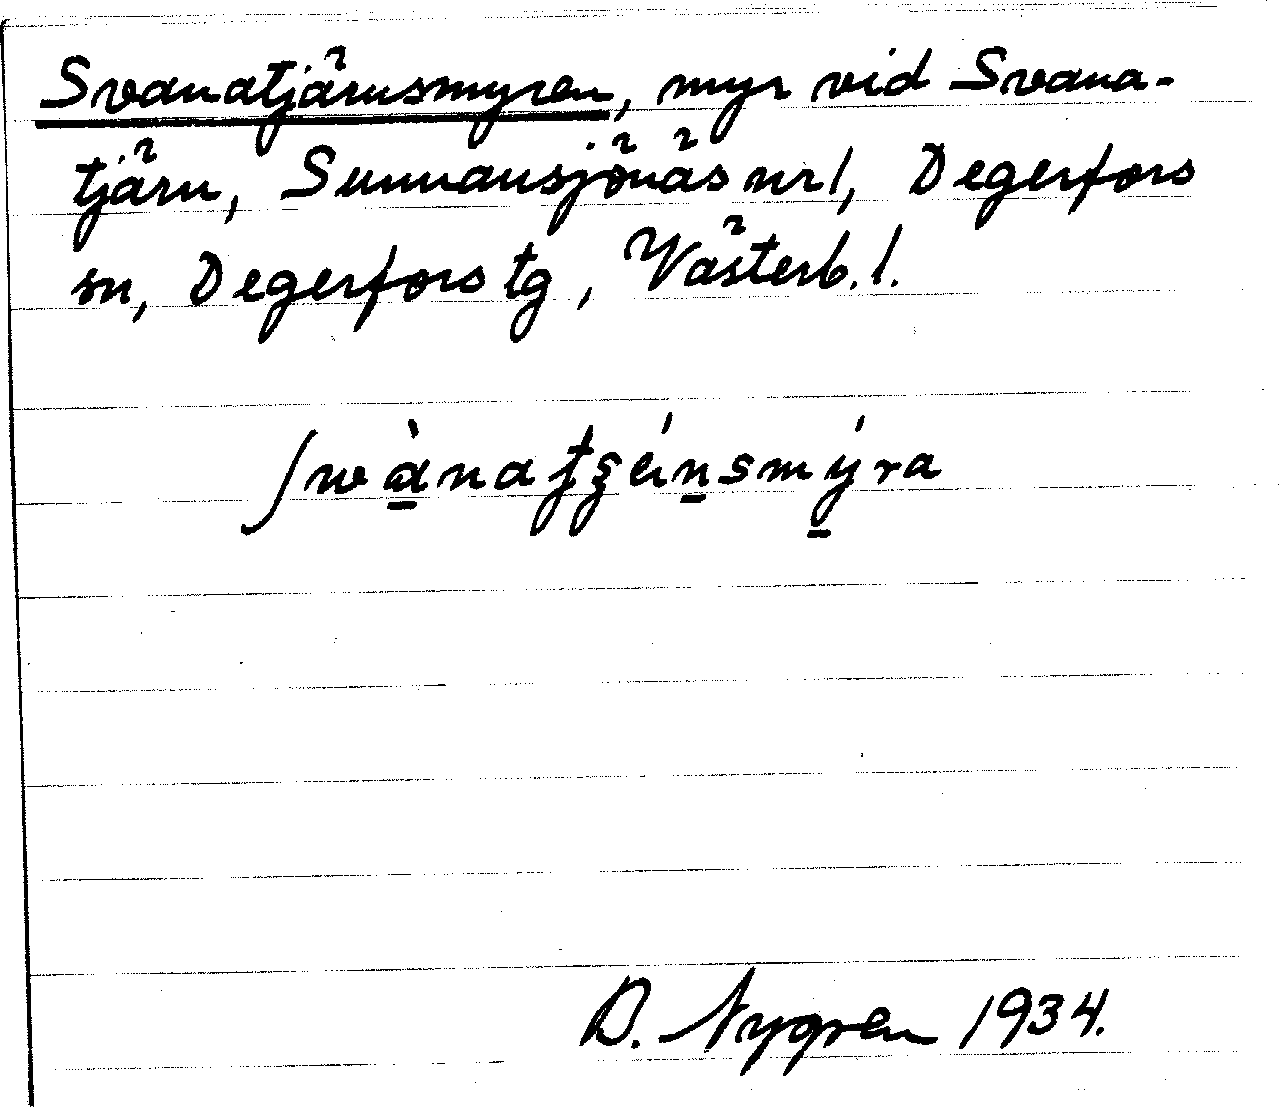 Svanatjärnsmyren, myr vid Svana-
tjärn, Sunnansjönäs nr 1, Degerfors
sn, Degerfors tg, Västerb. l.
D. Nygren 1934.